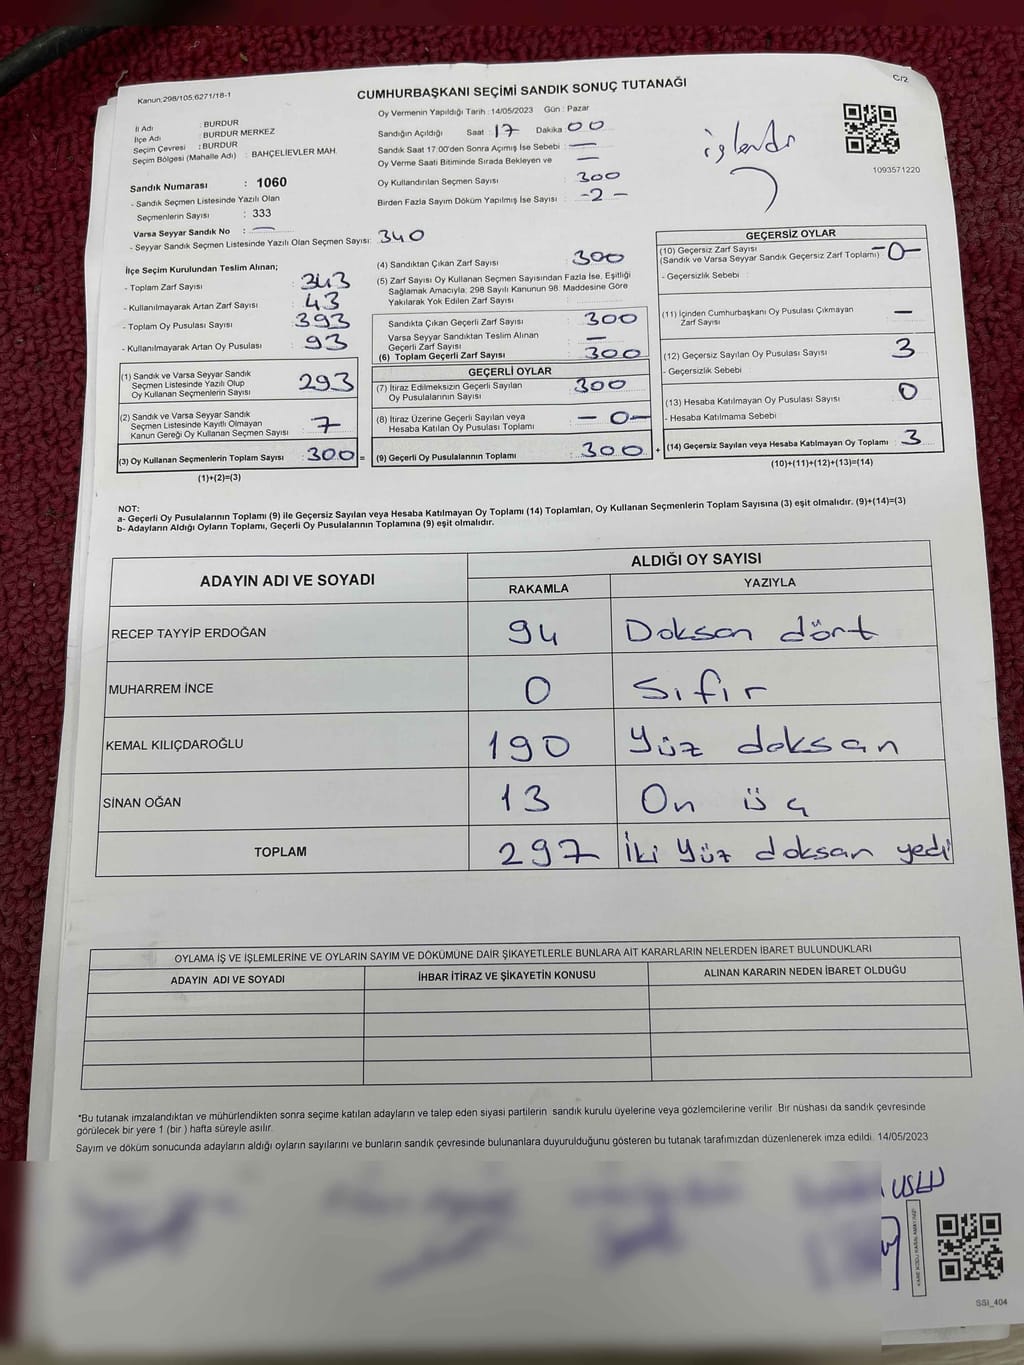 C/2
Kanun:298/105;6271/18-1
CUMHURBAŞKANI SEÇİMİ SANDIK SONUÇ TUTANAĞI
İl Adı : BURDUR
İlçe Adı : BURDUR MERKEZ
Seçim Çevresi : BURDUR
Seçim Bölgesi (Mahalle Adı) : BAHÇELİEVLER MAH.
Oy Vermenin Yapıldığı Tarih : 14/05/2023 Gün : Pazar
Sandığın Açıldığı Saat : 17 Dakika 00
Sandık Saat 17:00'den Sonra Açımış İse Sebebi : —
Oy Verme Saati Bitiminde Sırada Bekleyen ve —
Oy Kullandırılan Seçmen Sayısı : 300
Birden Fazla Sayım Döküm Yapılmış İse Sayısı : -2-
işlendi
1093571220
Sandık Numarası : 1060
- Sandık Seçmen Listesinde Yazılı Olan
Seçmenlerin Sayısı : 333
Varsa Seyyar Sandık No : —
- Seyyar Sandık Seçmen Listesinde Yazılı Olan Seçmen Sayısı: 340
İlçe Seçim Kurulundan Teslim Alınan;
- Toplam Zarf Sayısı : 343
- Kullanılmayarak Artan Zarf Sayısı : 43
- Toplam Oy Pusulası Sayısı : 393
- Kullanılmayarak Artan Oy Pusulası : 93
(1) Sandık ve Varsa Seyyar Sandık
Seçmen Listesinde Yazılı Olup
Oy Kullanan Seçmenlerin Sayısı : 293
(2) Sandık ve Varsa Seyyar Sandık
Seçmen Listesinde Kayıtlı Olmayan
Kanun Gereği Oy Kullanan Seçmen Sayısı : 7
(3) Oy Kullanan Seçmenlerin Toplam Sayısı : 300 =
(1)+(2)=(3)
(4) Sandıktan Çıkan Zarf Sayısı : 300
(5) Zarf Sayısı Oy Kullanan Seçmen Sayısından Fazla İse, Eşitliği
Sağlamak Amacıyla; 298 Sayılı Kanunun 98. Maddesine Göre
Yakılarak Yok Edilen Zarf Sayısı :
Sandıkta Çıkan Geçerli Zarf Sayısı : 300
Varsa Seyyar Sandıktan Teslim Alınan
Geçerli Zarf Sayısı : —
(6) Toplam Geçerli Zarf Sayısı : 300
GEÇERLİ OYLAR
(7) İtiraz Edilmeksizin Geçerli Sayılan
Oy Pusulalarının Sayısı : 300
(8) İtiraz Üzerine Geçerli Sayılan veya
Hesaba Katılan Oy Pusulası Toplamı : -0-
(9) Geçerli Oy Pusulalarının Toplamı : 300 +
GEÇERSİZ OYLAR
(10) Geçersiz Zarf Sayısı
(Sandık ve Varsa Seyyar Sandık Geçersiz Zarf Toplamı) : -0-
- Geçersizlik Sebebi :
(11) İçinden Cumhurbaşkanı Oy Pusulası Çıkmayan
Zarf Sayısı : —
(12) Geçersiz Sayılan Oy Pusulası Sayısı : 3
- Geçersizlik Sebebi :
(13) Hesaba Katılmayan Oy Pusulası Sayısı : 0
- Hesaba Katılmama Sebebi :
(14) Geçersiz Sayılan veya Hesaba Katılmayan Oy Toplamı : 3
(10)+(11)+(12)+(13)=(14)
NOT:
a- Geçerli Oy Pusulalarının Toplamı (9) ile Geçersiz Sayılan veya Hesaba Katılmayan Oy Toplamı (14) Toplamları, Oy Kullanan Seçmenlerin Toplam Sayısına (3) eşit olmalıdır. (9)+(14)=(3)
b- Adayların Aldığı Oyların Toplamı, Geçerli Oy Pusulalarının Toplamına (9) eşit olmalıdır.
ADAYIN ADI VE SOYADI ALDIĞI OY SAYISI
RAKAMLA YAZIYLA
RECEP TAYYİP ERDOĞAN 94 Doksan dört
MUHARREM İNCE 0 Sıfır
KEMAL KILIÇDAROĞLU 190 Yüz doksan
SİNAN OĞAN 13 On üç
TOPLAM 297 İki Yüz doksan yedi
OYLAMA İŞ VE İŞLEMLERİNE VE OYLARIN SAYIM VE DÖKÜMÜNE DAİR ŞİKAYETLERLE BUNLARA AİT KARARLARIN NELERDEN İBARET BULUNDUKLARI
ADAYIN ADI VE SOYADI İHBAR İTİRAZ VE ŞİKAYETİN KONUSU ALINAN KARARIN NEDEN İBARET OLDUĞU
*Bu tutanak imzalandıktan ve mühürlendikten sonra seçime katılan adayların ve talep eden siyasi partilerin sandık kurulu üyelerine veya gözlemcilerine verilir. Bir nüshası da sandık çevresinde
görülecek bir yere 1 (bir ) hafta süreyle asılır.
Sayım ve döküm sonucunda adayların aldığı oyların sayılarını ve bunların sandık çevresinde bulunanlara duyurulduğunu gösteren bu tutanak tarafımızdan düzenlenerek imza edildi. 14/05/2023
USLU
KARE KODU KARALAMAYINIZ!
SSI_404